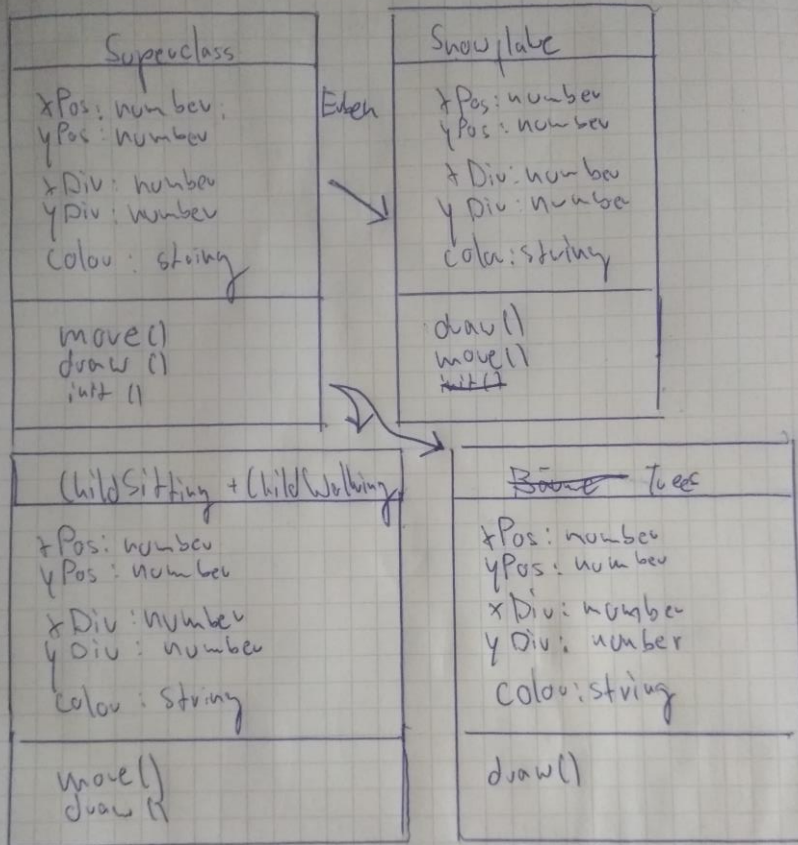 Superclass
xPos: number;
yPos: number
xDiv: number
yDiv: number
Color: string
move()
draw()
init()
Erben
Snowflake
xPos: number
yPos: number
xDiv: number
yDiv: number
Color: string
draw()
move()
init()
ChildSitting + ChildWalking
xPos: number
yPos: number
xDiv: number
yDiv: number
Color: string
move()
draw()
Bäume Trees
xPos: number
yPos: number
xDiv: number
yDiv: number
Color: string
draw()